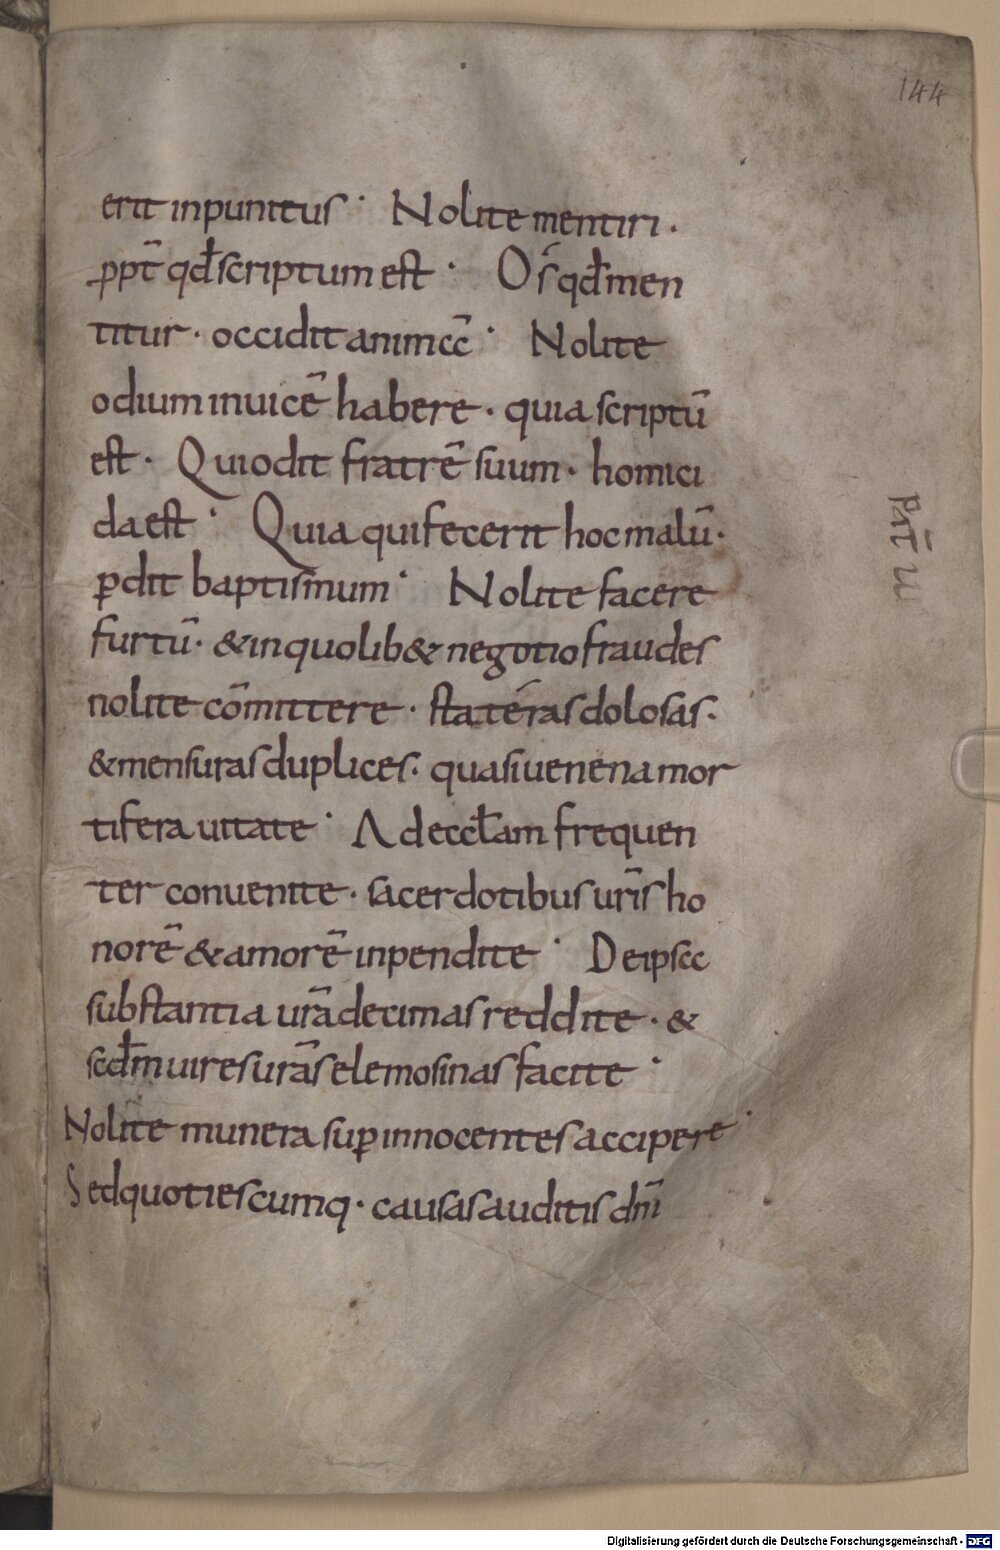 144
erit inpunitus · Nolite mentiri ·
ꝓpt̄ qđ scriptum est · Os qđ men
titur · occidit animā · Nolite
odium inuicē habere · quia scriptū
est · Qui odit fratrē suum · homici
da est · Quia qui fecerit hoc malū ·
ꝑdit baptismum · Nolite facere
furtū · & in quolib& negotio fraudes
nolite cōmittere · stateras dolosas ·
& mensuras duplices · quasi uenena mor
tifera uitate · Ad eccłam frequen
ter conuenite · sacerdotibus ur̄is ho
norē & amorē inpendite · De ipsa
substantia ur̄a decimas reddite · &
scđm uires ur̄as elemosinas facite ·
Nolite munera suꝑ innocentes accipere ·
Sed quotiescumq · causas auditis dn̄i
Digitalisierung gefördert durch die Deutsche Forschungsgemeinschaft - DFG